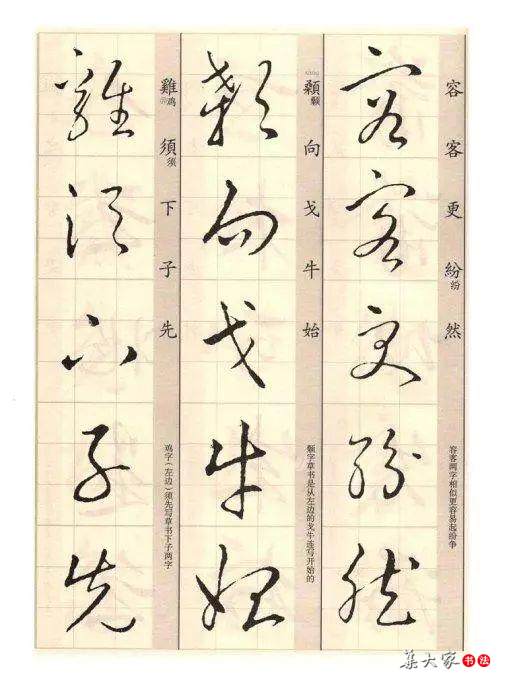 容客更紛然
容客更紛然
纷
容客两字相似更容易起纷争
顙向戈牛始
颡向戈牛始
颡字草书是从左边的戈牛连写开始的
雞須下子先
雞須下子先
鸡
须
鸡字（左边）须先写草书下子两字
集大家书法